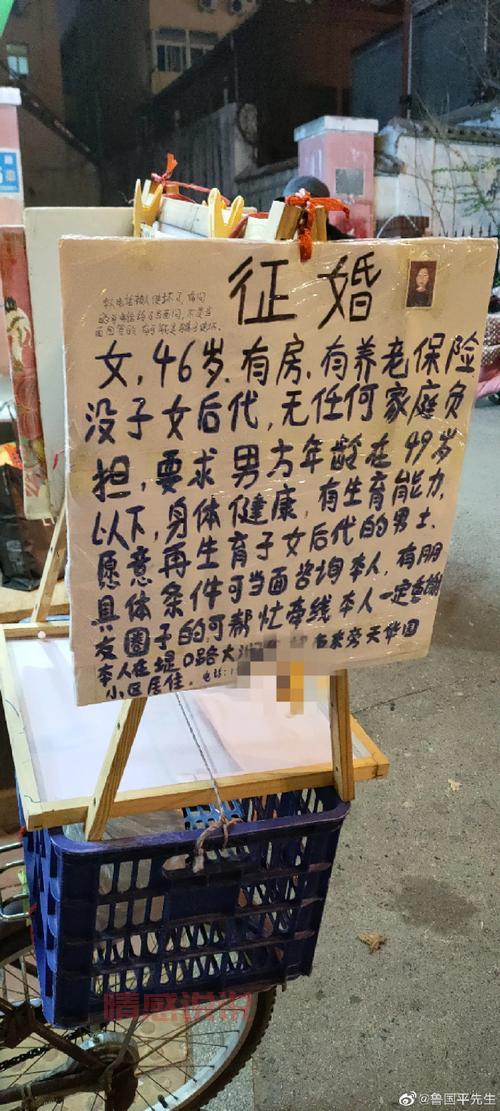 征婚
女，46岁.有房.有养老保险
没子女后代，无任何家庭负
担，要求男方年龄在49岁
以下，身体健康，有生育能力.
愿意再生育子女后代的男士.
具体条件可当面咨询本人，有朋
友圈子的可帮忙牵线本人一定重谢
本人在堤口路大 名来旁天华园
小区居住。电话：1
情感说说
@鲁国平先生